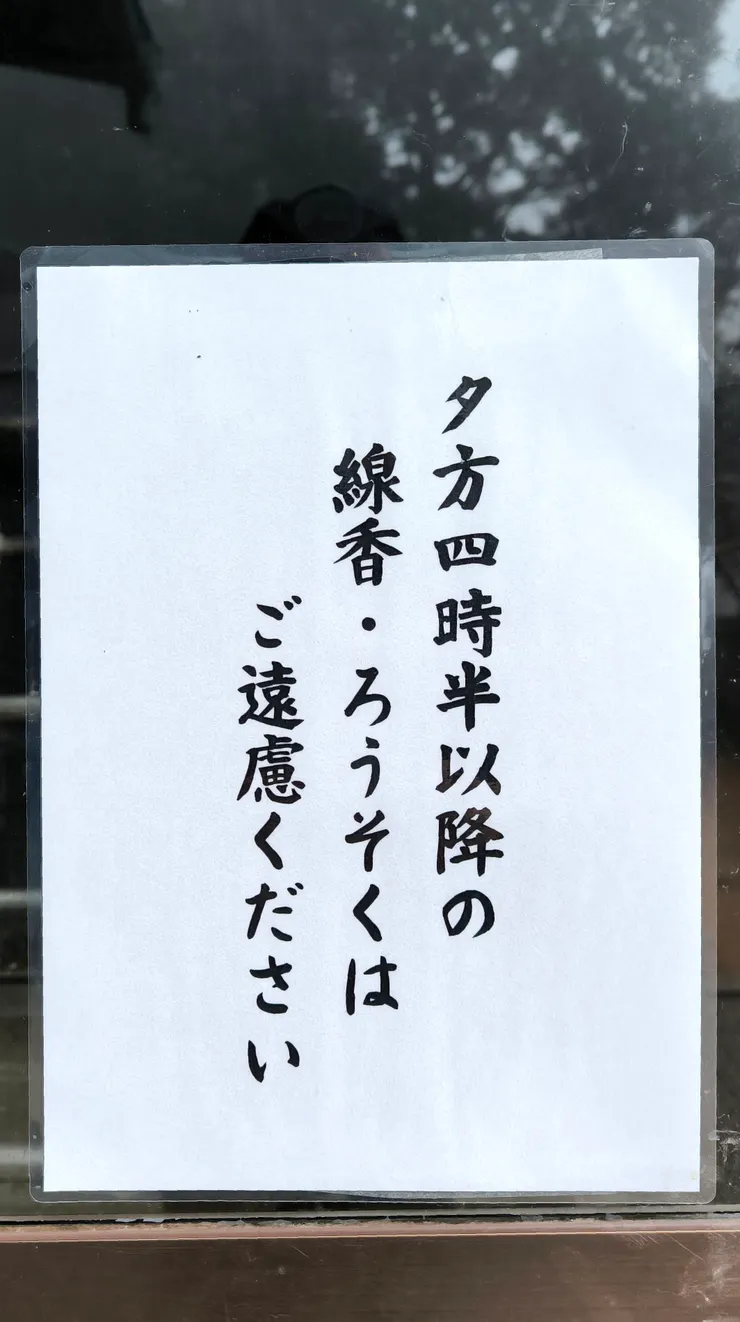 夕方四時半以降の
線香・ろうそくは
ご遠慮ください